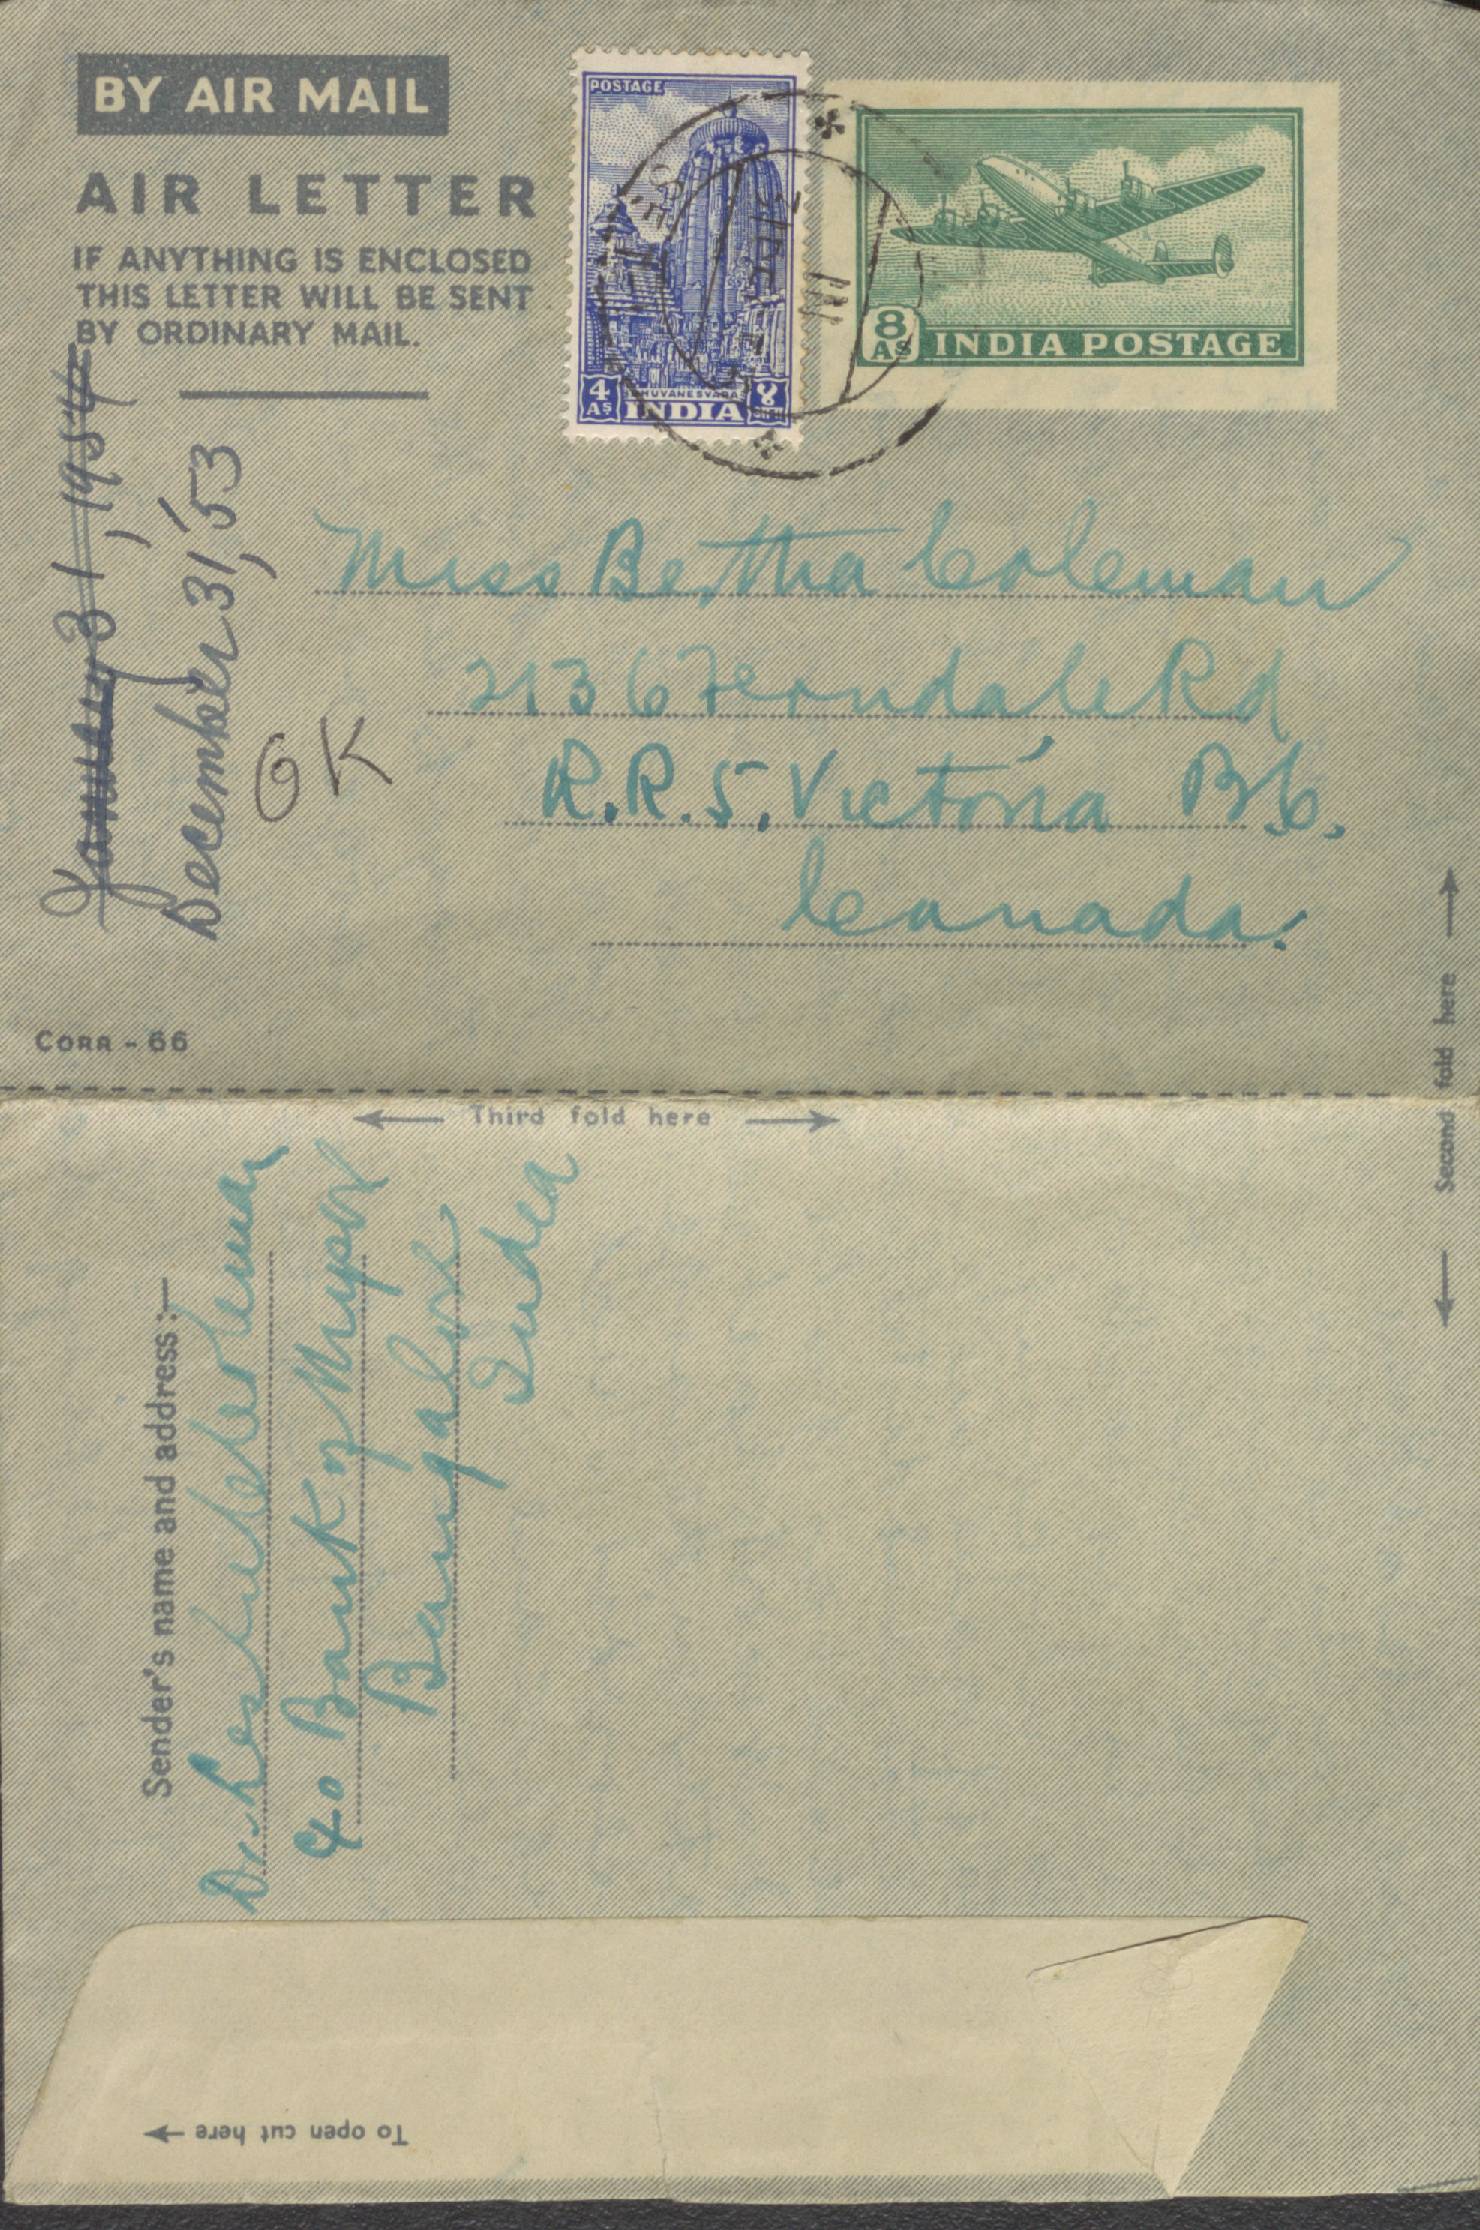 BY AIR MAIL
AIR LETTER
IF ANYTHING IS ENCLOSED
THIS LETTER WILL BE SENT
BY ORDINARY MAIL.
POSTAGE
4 AS
BHUVANESVARA
INDIA
8 AS INDIA POSTAGE
January 31, 1954
December 31, '53
OK
Miss Bertha Coleman
2136 Ferndale Rd
R.R.5, Victoria B.C.
Canada.
CORR - 66
Third fold here
Second fold here
Sender's name and address :—
Dr. Leslie Coleman
c/o Bank of Mysore
Bangalore
India
To open cut here